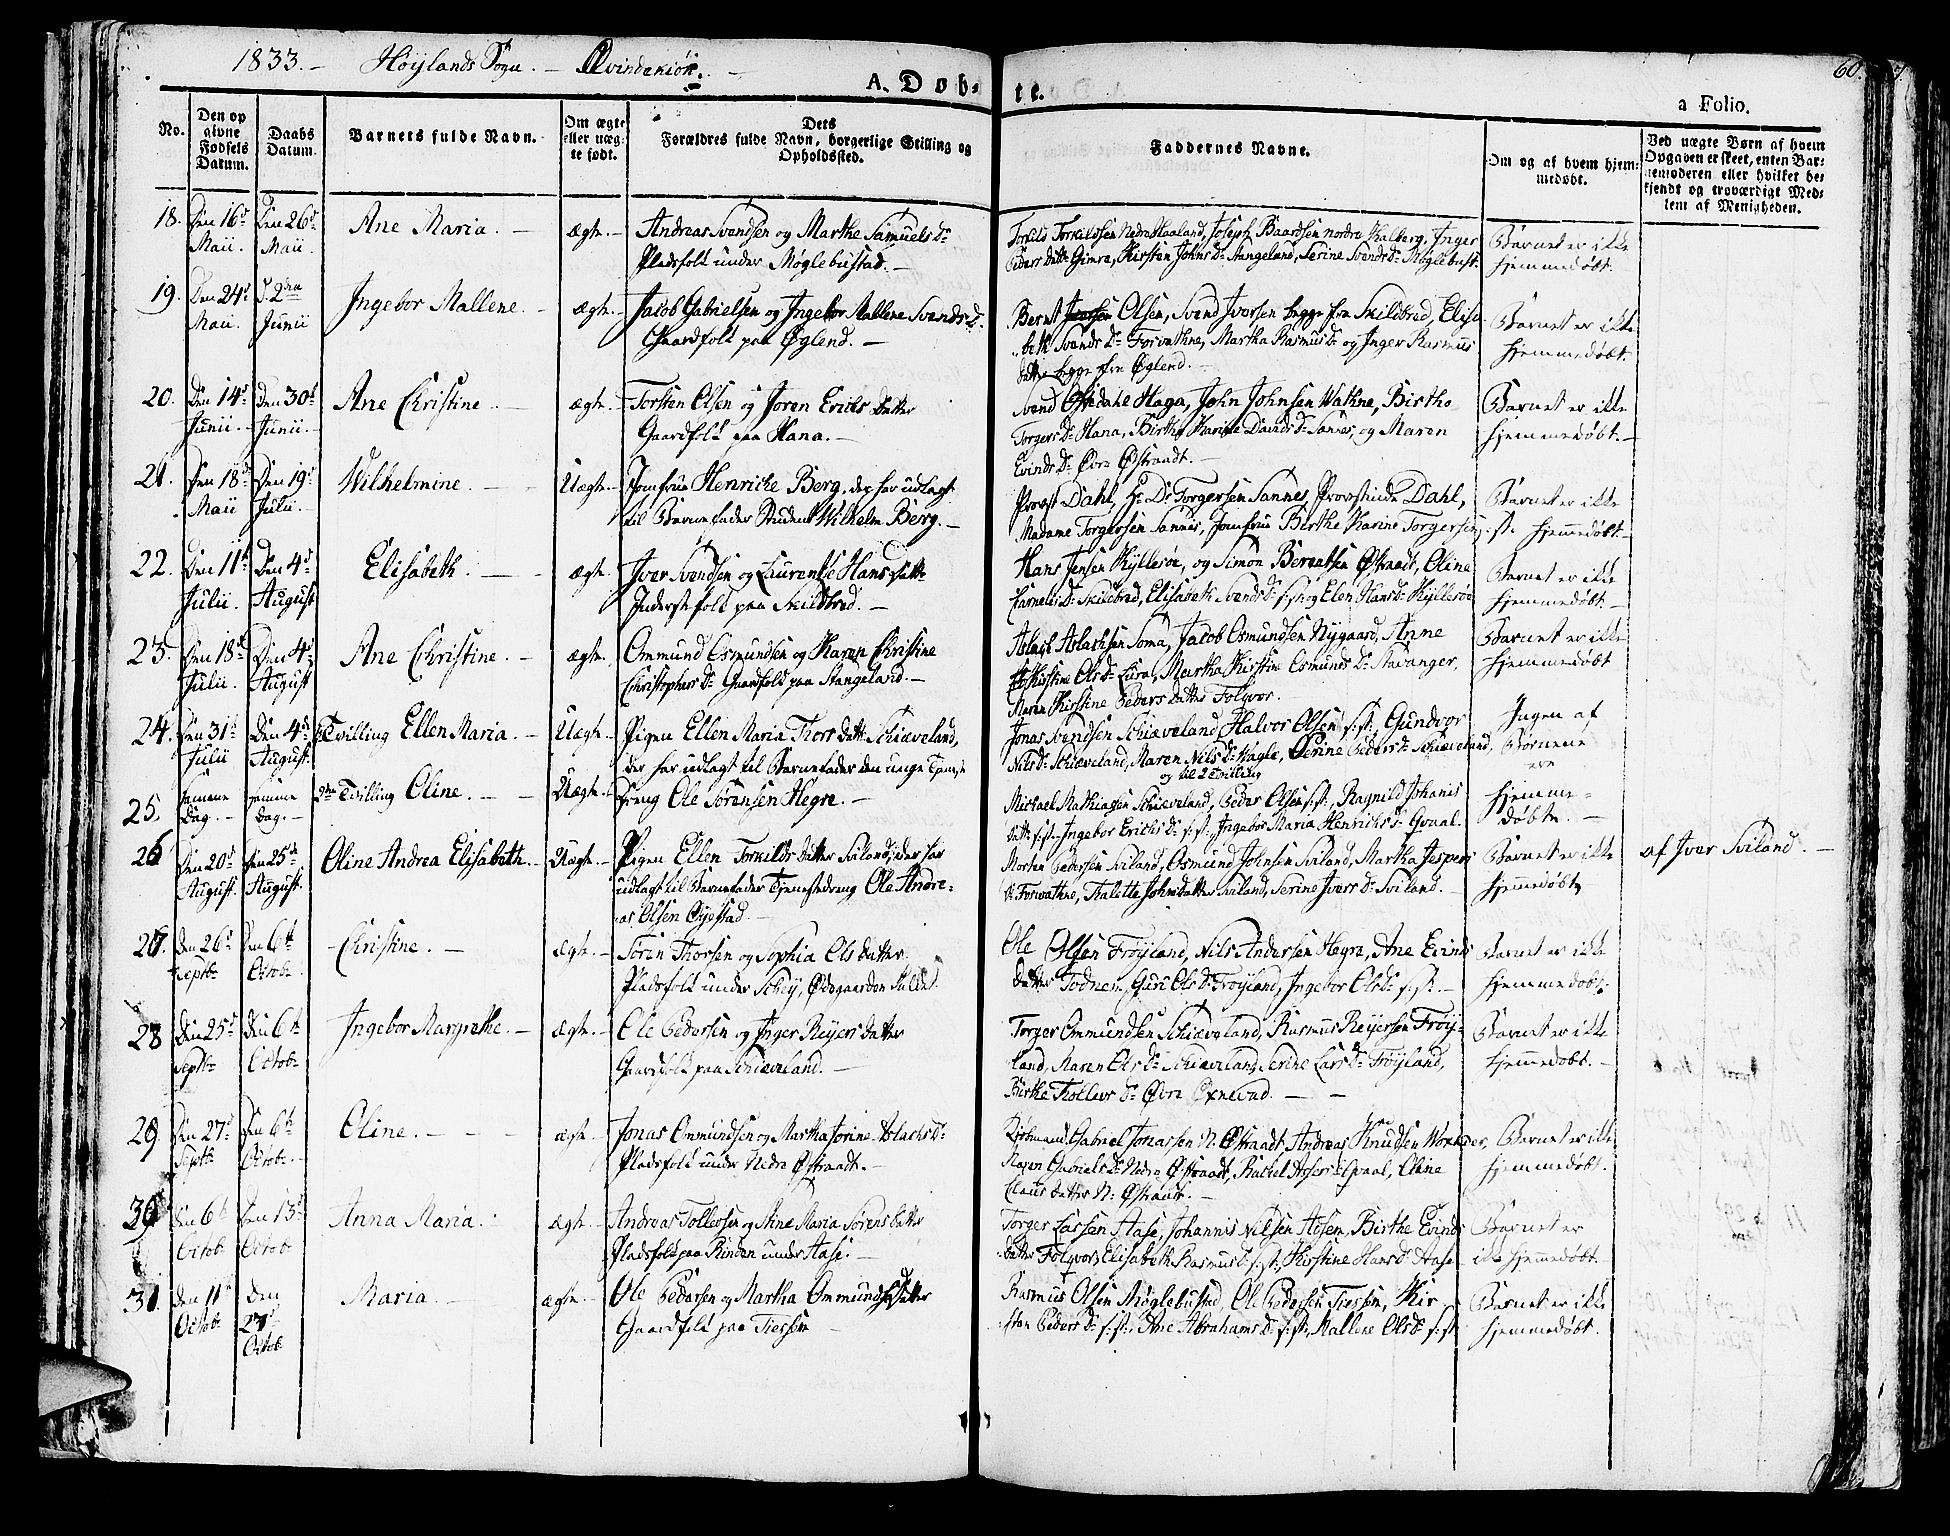 1833. - Høylands Sogn. - Qvindekiøn. -
60.
A. Døb- te.
a Folio.
No.
Den op
givne
Fødsels
Datum.
Daabs
Datum.
Barnets fulde Navn.
Om ægte
eller uæg-
te født.
Dets
Forældres fulde Navn, borgerlige Stilling og
Opholdssted.
Faddernes Navne.
Om og af hvem hjem-
medøbt.
Ved uægte Børn af hvem
Opgaven er skeet, enten Bar-
nemoderen eller hvilket be-
kjendt og troværdigt Med-
lem af Menigheden.
18. Den 16d Maii Den 26d Maii. Ane Maria. - ægte -
Andreas Svendsen og Marthe Samuels Dr
Pladsfolk under Møglebustad. -
Torkild Torkildsen Nedre Haaland, Joseph Baardsen nordre Kalberg, Inger
Peders datter Gimra, Kirsten Johns Dr Stangeland, Serine Svends Dr Møglebust.
Barnet er ikke
hjemmedøbt.
19. Den 24d Maii. D. 2den Junii Ingebor Mallene. - ægte. -
Jacob Gabrielsen og Ingebor Mallene Svends D.
Gaardfolk paa Øglend. -
Bernt Olsen, Svend Iversen begge fra Skildbred, Elisa-
beth Svends Dr Forvathne, Martha Rasmus Dr og Inger Rasmus
datter begge fra Øglend. -
Barnet er ikke
hjemmedøbt.
20. Den 14d Junii. Den 30d Junii. Ane Christine. - ægte. -
Torsten Olsen og Joren Erichs datter
Gaardfolk paa Hana. -
Svend Haga, John Johnsen Wathne, Birtha
Torgers Dr Hana, Birthe Karine Davids Dr Sannes, og Maren
Evinds Dr Øvre Østraadt. -
Barnet er ikke
hjemmedøbt. -
21. Den 18d Maii Den 19d Julii. Wilhelmine. - Uægte. -
Jomfrue Henricke Berg, der har udlagt
til Barnefader Student Wilhelm Berg. -
Provst Dahl, Torgersen Sannes, Provstinde Dahl,
Madame Torgersen Sannes, Jomfrue Birthe Karine Torgersen s: st:
Barnet er ikke
hjemmedøbt -
22. Den 11d Julii. Den 4d August Elisabeth. - ægte.
Iver Svendsen og Laurentse Hans datter
Inderstefolk paa Skildbred. -
Hans Jensen Kyllesøe, og Simon Berentsen Østraadt, Oline
Cornelis Dr Skildbred, Elisabeth Svends Dr s: st: og Elen Hans Dr Kyllesøe
Barnet er ikke
hjemmedøbt. -
23. Den 18d Julii. Den 4d August Ane Christine. - ægte.
Ommund Osmundsen og Karen Christine
Christophers Dr Gaardfolk paa Stangeland. -
Aslach Aslachsen Soma, Jacob Osmundsen Nygaard, Anne
Kirstine Ols Dr Lura, Martha Kirstine Osmunds Dr Stavanger,
Maren Kirstine Peders datter Folgvor.
Barnet er ikke
hjemmedøbt
24. Den 31d Julii Den 4d August. Tvilling Ellen Maria. - Uægte. -
Pigen Ellen Maria Thors datter Schiæveland,
der har udlagt til Barnefader den unge Tjeneste
Jonas Svendsen Schiæveland, Halvor Olsen s: st:, Gundvor
Nils Dr Schiæveland, Maren Nils Dr Hagle, Serine Peders Dr Schiæveland,
og til 2 Tvilling
Ingen af
Børnene
ere
25. samme Dag. - samme Dag. - 2den Tvilling Oline. - Uægte. -
dreng Ole Sørensen Hegre. -
Michael Mathiasen Schiæveland, Peder Olsen s: st:, Ragnild Johanis
datter s: st:, Ingebor Erichs Dr s: st:, Ingebor Maria Henrichs Dr Gvaal.
hjemme-
døbte. -
26 Den 20d August. Den 25d August. Oline Andrea Elisabeth. - Uægte. -
Pigen Ellen Torkilds datter Sviland, der har
udlagt til Barnefader Tjenestedreng Ole Andre-
as Olsen Øyestad. -
Morten Pedersen Sviland, Osmund Johnsen Sviland, Martha Jespers
Dr Forvathne, Malette Johns datter Sviland, Serine Ivers Dr Sviland.
Barnet er ikke
hjemmedøbt
af Iver Sviland. -
27. Den 26d Septbr Den 6te Octobr. Christine. - ægte. -
Sören Thorsen og Sophia Ols datter
Pladsfolk under Schey, Ødegaarden
Ole Olsen Frøyland, Nils Andersen Hegre, Ane Evinds
datter Todnem, Guri Ols Dr Frøyland, Ingebor Ols Dr s: st: -
Barnet er ikke
hjemmedøbt.
28 Den 25d Septbr Den 6te Octobr Ingebor Margrethe. - ægte. -
Ole Pedersen og Inger Reyers datter
Gaardfolk paa Schiæveland. -
Torger Ommundsen Schiæveland, Rasmus Reyersen Frøy-
land, Maren Ols Dr Schiæveland, Serine Lars Dr Frøyland,
Birthe Tollevs Dr Øvre Oxnevad. - -
Barnet er ikke
hjemmedøbt. -
29 Den 27d Septbr Den 6te Octobr. Oline. - - - ægte.
Jonas Ommundsen og Martha Serine Aslachs Dr
Pladsfolk under Nedre Østraadt. -
Gabriel Jonassen N: Østraadt, Andreas Knudsen
Maren Gabriels Dr Nedre Østraadt, Rachel Gvaal, Oline
Claus datter N: Østraadt. -
Barnet er ikke
hjemmedøbt.
30 Den 6te Octob Den 13d Octob Anna Maria. - ægte. -
Andreas Tollevsen og Stine Maria Sörens datter
Pladsfolk paa Rinden under Aase. -
Torger Larssen Aase, Johannis Nilsen Aasen, Birthe Evinds
datter Folgvor, Elisabeth Rasmus Dr s: st:, Kirstine Hans Dr Aase
Barnet er
ikke hjemmedøbt.
31. Den 11te Octob Den 27d Octob. Maria. - ægte. -
Ole Pedersen og Martha Ommunds datter
Gaardfolk paa Tiessem -
Rasmus Olsen Møglebustad, Ole Pedersen Tiessem, Kir-
sten Peders Dr s: st:, Ane Abrahams Dr s: st:, Mallene Ols Dr s: st:
Barnet er ikke
hjemmedøbt.